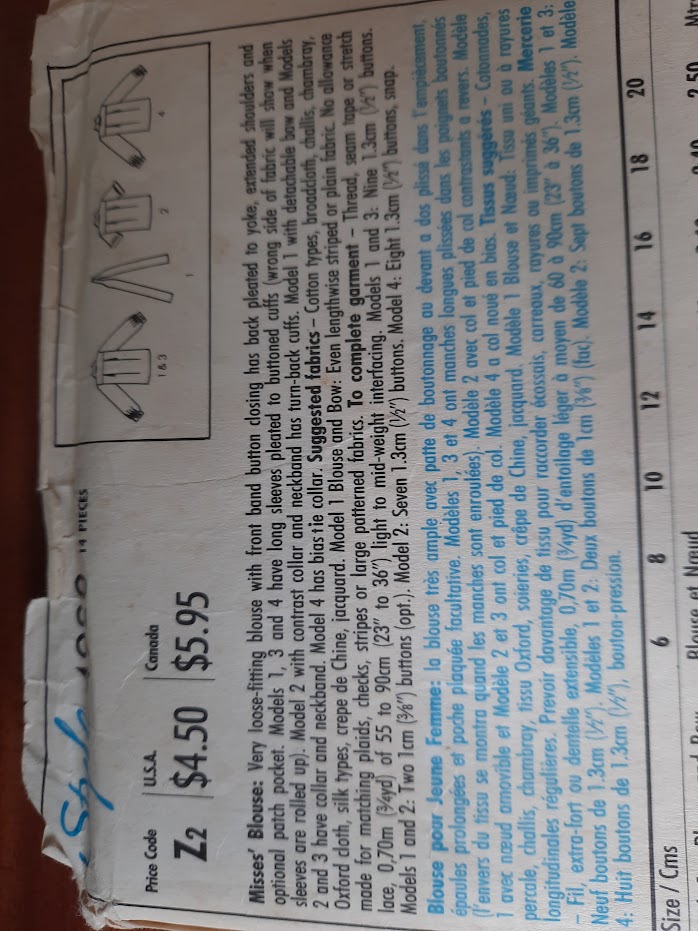 Style
14 PIECES
1 & 3
1
2
4
Price Code
U.S.A.
Canada
Z2
$4.50
$5.95
Misses' Blouse: Very loose-fitting blouse with front band button closing has back pleated to yoke, extended shoulders and
optional patch pocket. Models 1, 3 and 4 have long sleeves pleated to buttoned cuffs (wrong side of fabric will show when
sleeves are rolled up). Model 2 with contrast collar and neckband has turn-back cuffs. Model 1 with detachable bow and Models
2 and 3 have collar and neckband. Model 4 has bias tie collar. Suggested fabrics – Cotton types, broadcloth, challis, chambray,
Oxford cloth, silk types, crepe de Chine, jacquard. Model 1 Blouse and Bow: Even lengthwise striped or plain fabric. No allowance
made for matching plaids, checks, stripes or large patterned fabrics. To complete garment – Thread, seam tape or stretch
lace, 0,70m (¾yd) of 55 to 90cm (23" to 36") light to mid-weight interfacing. Models 1 and 3: Nine 1.3cm (½") buttons.
Models 1 and 2: Two 1cm (⅜") buttons (opt.). Model 2: Seven 1.3cm (½") buttons. Model 4: Eight 1.3cm (½") buttons, snap.
Blouse pour Jeune Femme: la blouse très ample avec patte de boutonnage au devant a dos plissé dans l'empiècement,
épaules prolongées et poche plaquée facultative. Modèles 1, 3 et 4 ont manches longues plissées dans les poignets boutonnés
(l'envers du tissu se montra quand les manches sont enroulées). Modèle 2 avec col et pied de col contrastants a revers. Modèle
1 avec nœud amovible et Modèle 2 et 3 ont col et pied de col. Modèle 4 a col noué en biais. Tissus suggérés – Cotonnades,
percale, challis, chambray, tissu Oxford, soieries, crêpe de Chine, jacquard. Modèle 1 Blouse et Nœud: Tissu uni ou à rayures
longitudinales régulières. Prevoir davantage de tissu pour raccorder écossais, carreaux, rayures ou imprimés géants. Mercerie
– Fil, extra-fort ou dentelle extensible, 0,70m (¾yd) d'entoilage léger à moyen de 60 à 90cm (23" à 36"). Modèles 1 et 3:
Neuf boutons de 1.3cm (½"). Modèles 1 et 2: Deux boutons de 1cm (⅜") (fac). Modèle 2: Sept boutons de 1.3cm (½"). Modèle
4: Huit boutons de 1.3cm (½"), bouton-pression.
Size / Cms 6 8 10 12 14 16 18 20
Blouse et Nœud
2.50